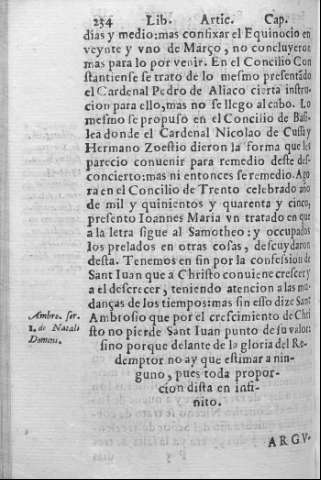 234 Lib. Artic. Cap.
dias y medio: mas confixar el Equinocio en
veynte y vno de Março, no concluyeron
mas para lo por venir. En el Concilio Con
stantiense se trato de lo mesmo presentãdo
el Cardenal Pedro de Aliaco cierta instru-
cion para ello, mas no se llego al cabo. Lo
mesmo se propuso en el Concilio de Basi-
lea donde el Cardenal Nicolao de Cussi y
Hermano Zoestio dieron la forma que les
parecio conuenir para remedio deste des-
concierto: mas ni entonces se remedio. Ago
ra en el Concilio de Trento celebrado año
de mil y quinientos y quarenta y cinco,
presento Ioannes Maria vn tratado en que
a la letra sigue al Samotheo: y occupados
los prelados en otras cosas, descuydaron
desta. Tenemos en fin por la confession de
Sant Iuan que a Christo conuiene crescer y
a el descrecer, teniendo atencion a las mu-
danças de los tiempos: mas sin esso dize Sant
Ambrosio que por el crescimiento de Chri
sto no pierde Sant Iuan punto de su valor:
sino porque delante de la gloria del Re-
demptor no ay que estimar a nin-
guno, pues toda propor-
cion dista en infi-
nito.
Ambro. ser.
2. de Natali
Domini.
ARGV-